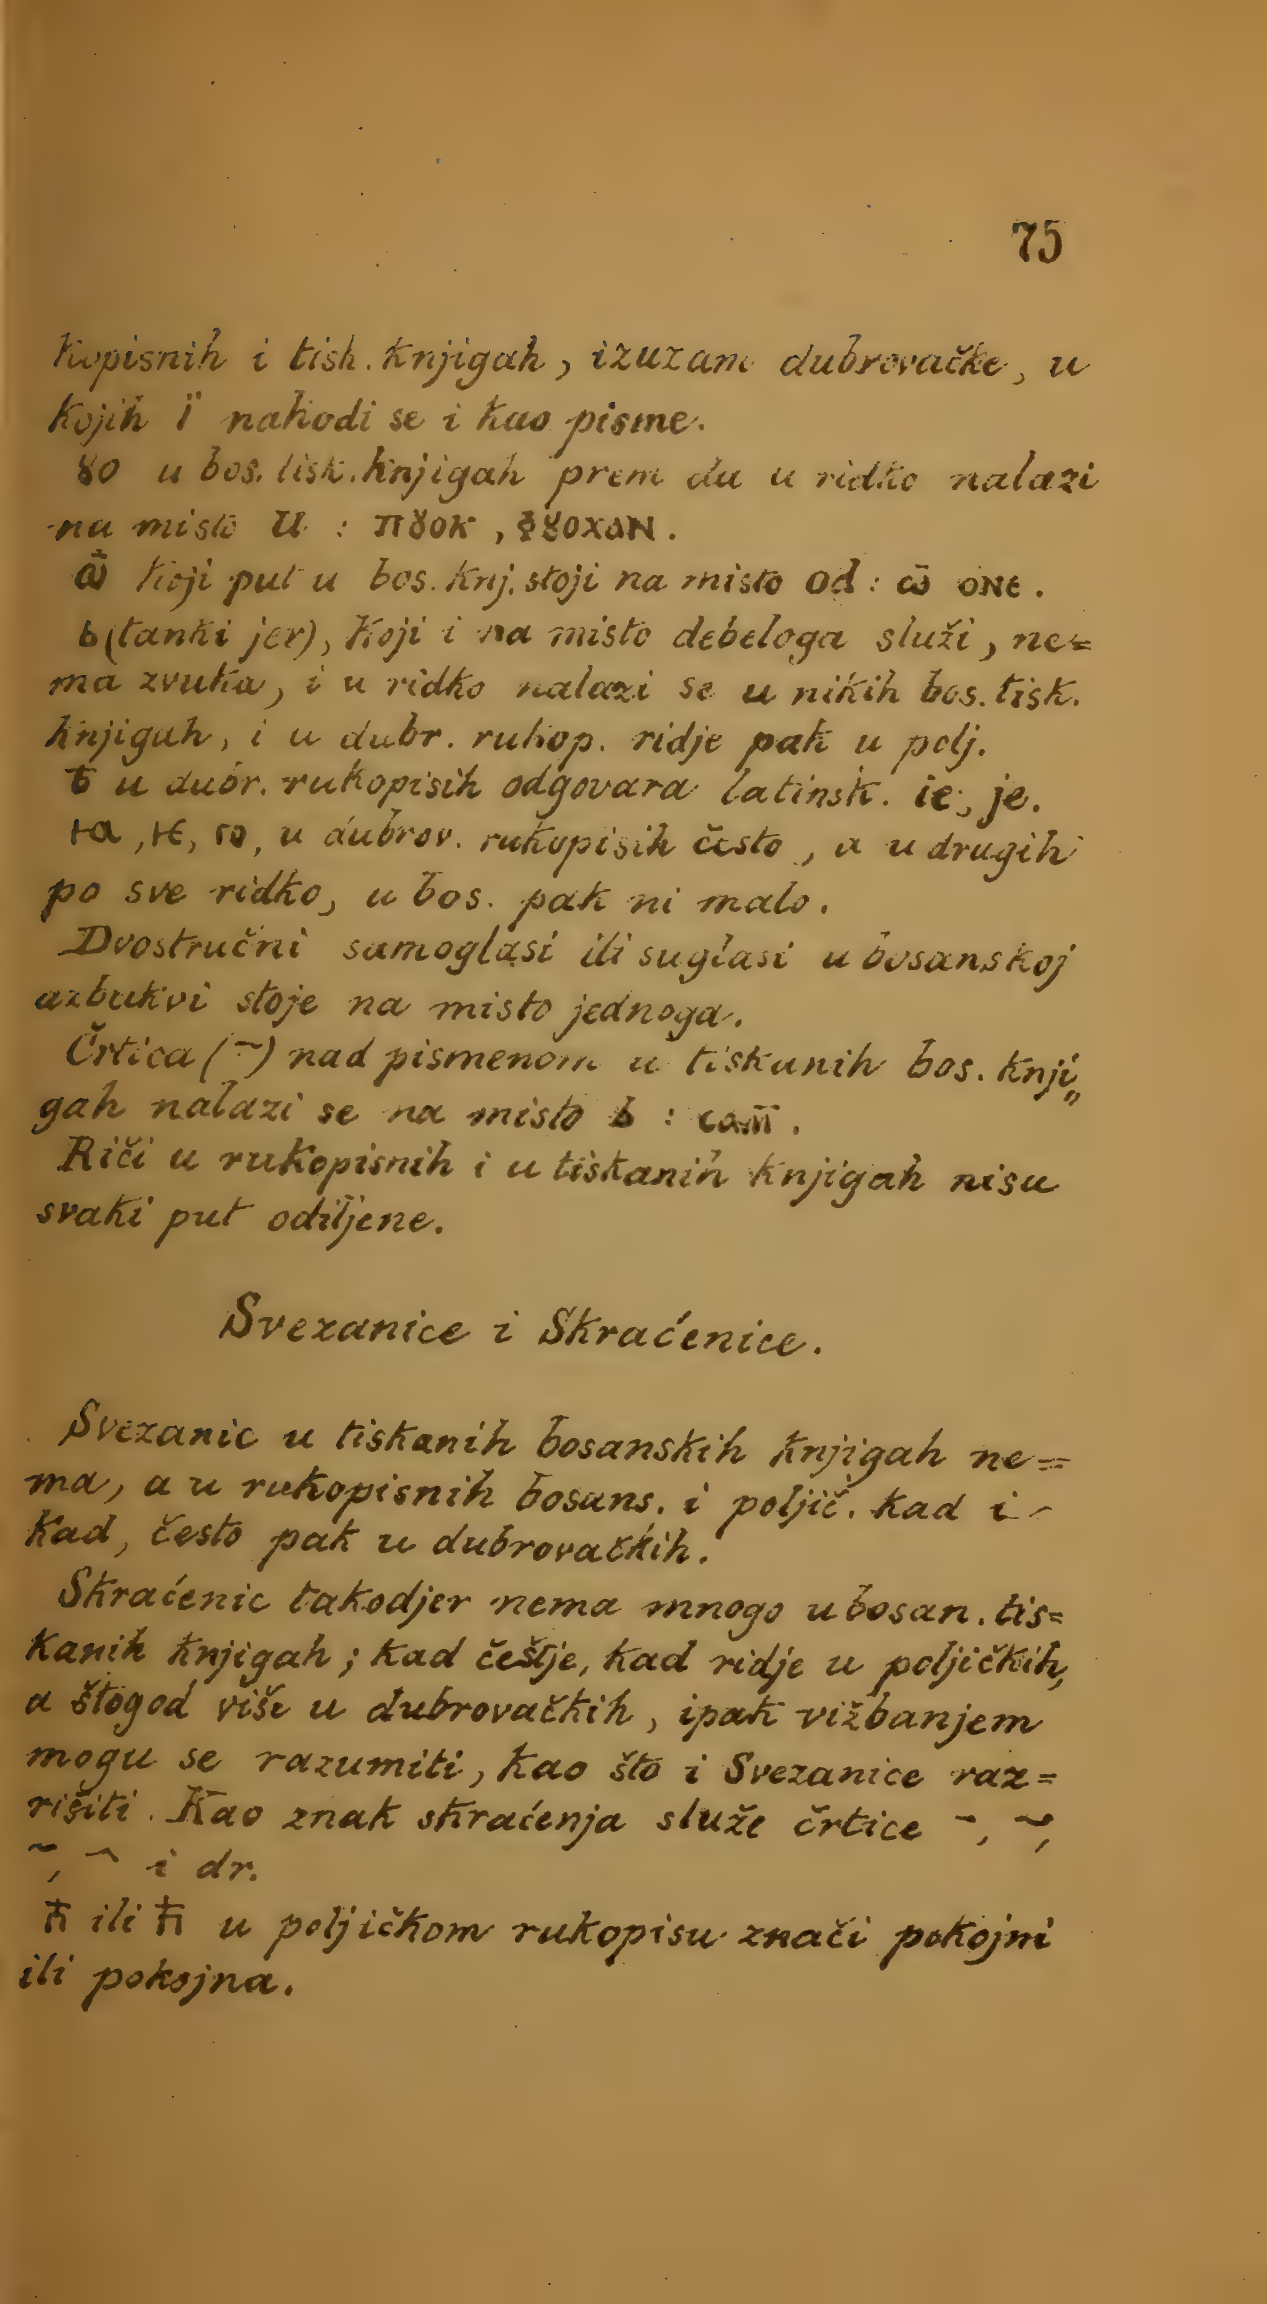 75
kopisnih i tisk. knjigah, izuzam dubrovačke, u
kojih ï nahodi se i kao pisme.
ȣo u bos. tisk. knjigah prem da u ridko nalazi
na misto u : пȣок, фȣохан.
ѿ koji put u bos. knj. stoji na misto od : ѿ оне.
ь (tanki jer), koji i na misto debeloga služi, ne=
ma zvuka, i u ridko nalazi se u nikih bos. tisk.
knjigah, i u dubr. rukop. ridje pak u polj.
ѣ u dubr. rukopisih odgovara latinsk. ie, je.
ꙗ, ѥ, ю, u dubrov. rukopisih često, a u drugih
po sve ridko, u bos. pak ni malo.
Dvostručni samoglasi ili suglasi u bosanskoj
azbukvi stoje na misto jednoga.
Črtica (~) nad pismenom u tiskanih bos. knji„
gah nalazi se na misto ь : сам̅.
Riči u rukopisnih i u tiskanih knjigah nisu
svaki put odiljene.
Svezanice i Skraćenice.
Svezanic u tiskanih bosanskih knjigah ne=
ma, a u rukopisnih bosans. i poljič. kad i-
kad, često pak u dubrovačkih.
Skraćenic takodjer nema mnogo u bosan. tis=
kanih knjigah; kad češtje, kad ridje u poljičkih,
a štogod više u dubrovačkih, ipak vižbanjem
mogu se razumiti, kao što i Svezanice raz=
rišiti. Kao znak skraćenja služe črtice ¯, ~,
~, ^ i dr.
ili u poljičkom rukopisu znači pokojni
ili pokojna.